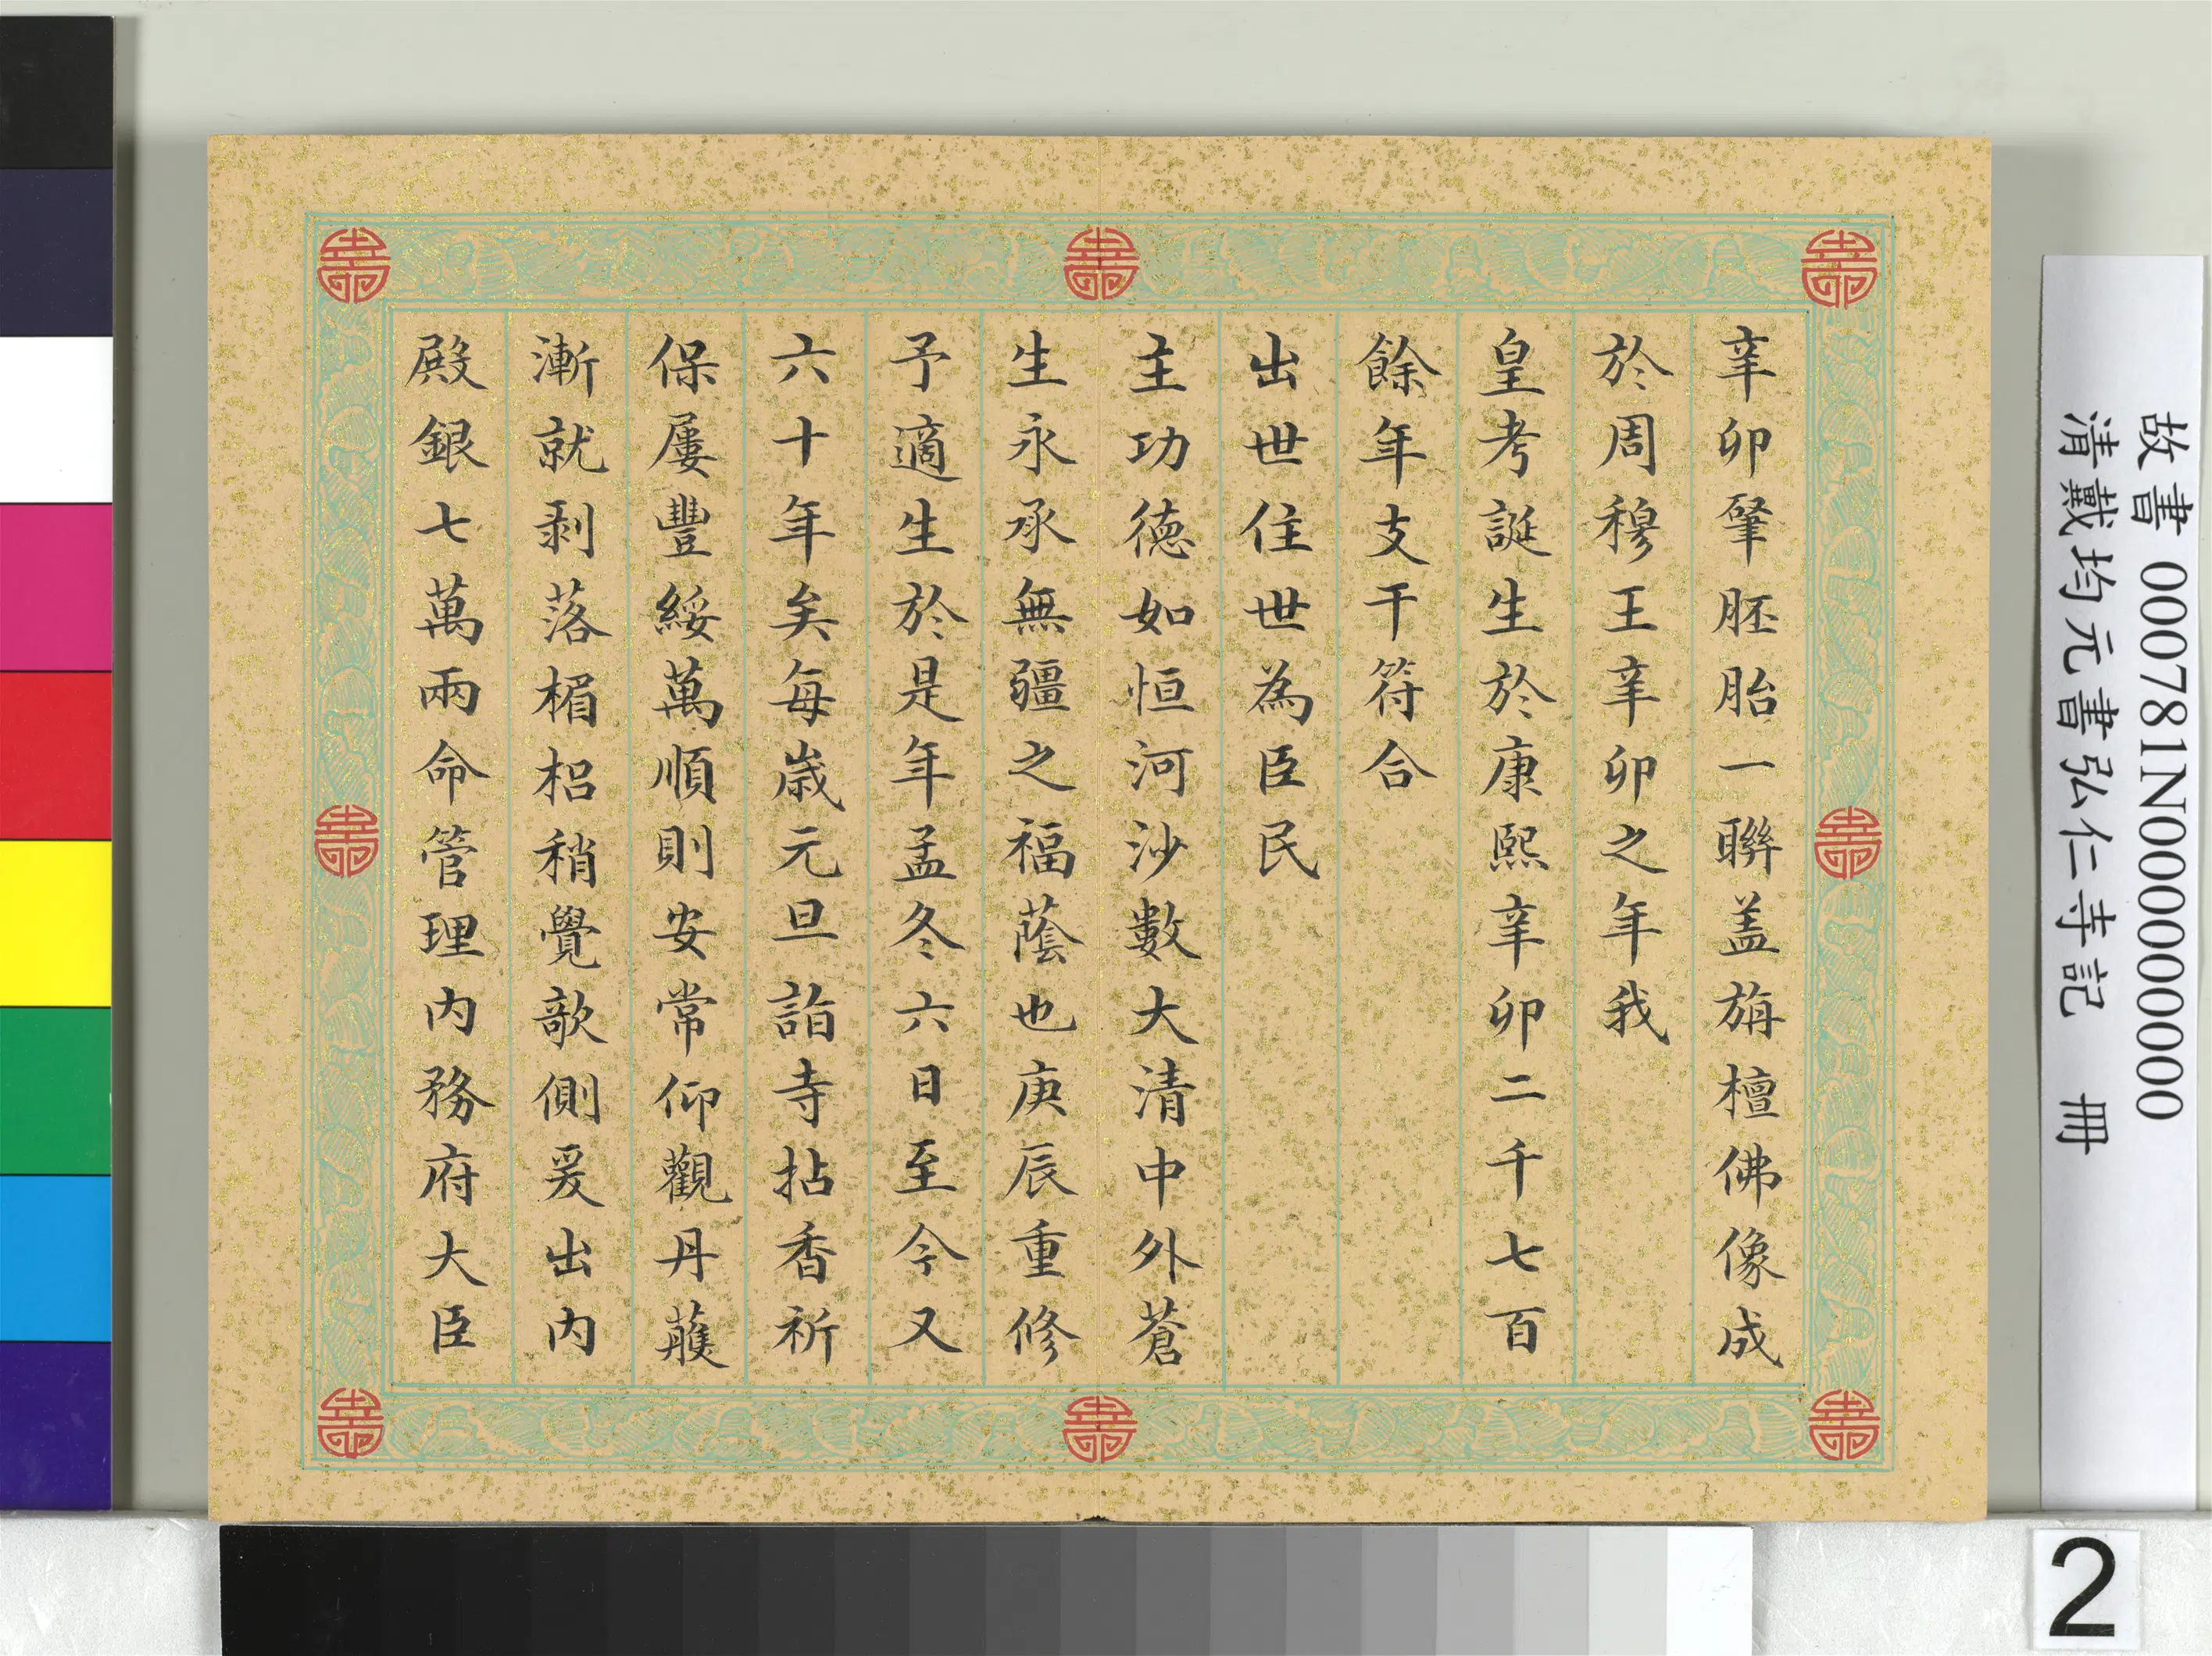 辛卯肇胚胎一聯盖旃檀佛像成
於周穆王辛卯之年我
皇考誕生於康熙辛卯二千七百
餘年支干符合
出世住世為臣民
主功德如恒河沙數大清中外蒼
生永承無疆之福蔭也庚辰重修
予適生於是年孟冬六日至今又
六十年矣每歲元旦詣寺拈香祈
保屢豐綏萬順則安常仰觀丹雘
漸就剥落楣梠稍覺欹側爰出内
殿銀七萬兩命管理内務府大臣
故書 000781N000000000
清戴均元書弘仁寺記 冊
2